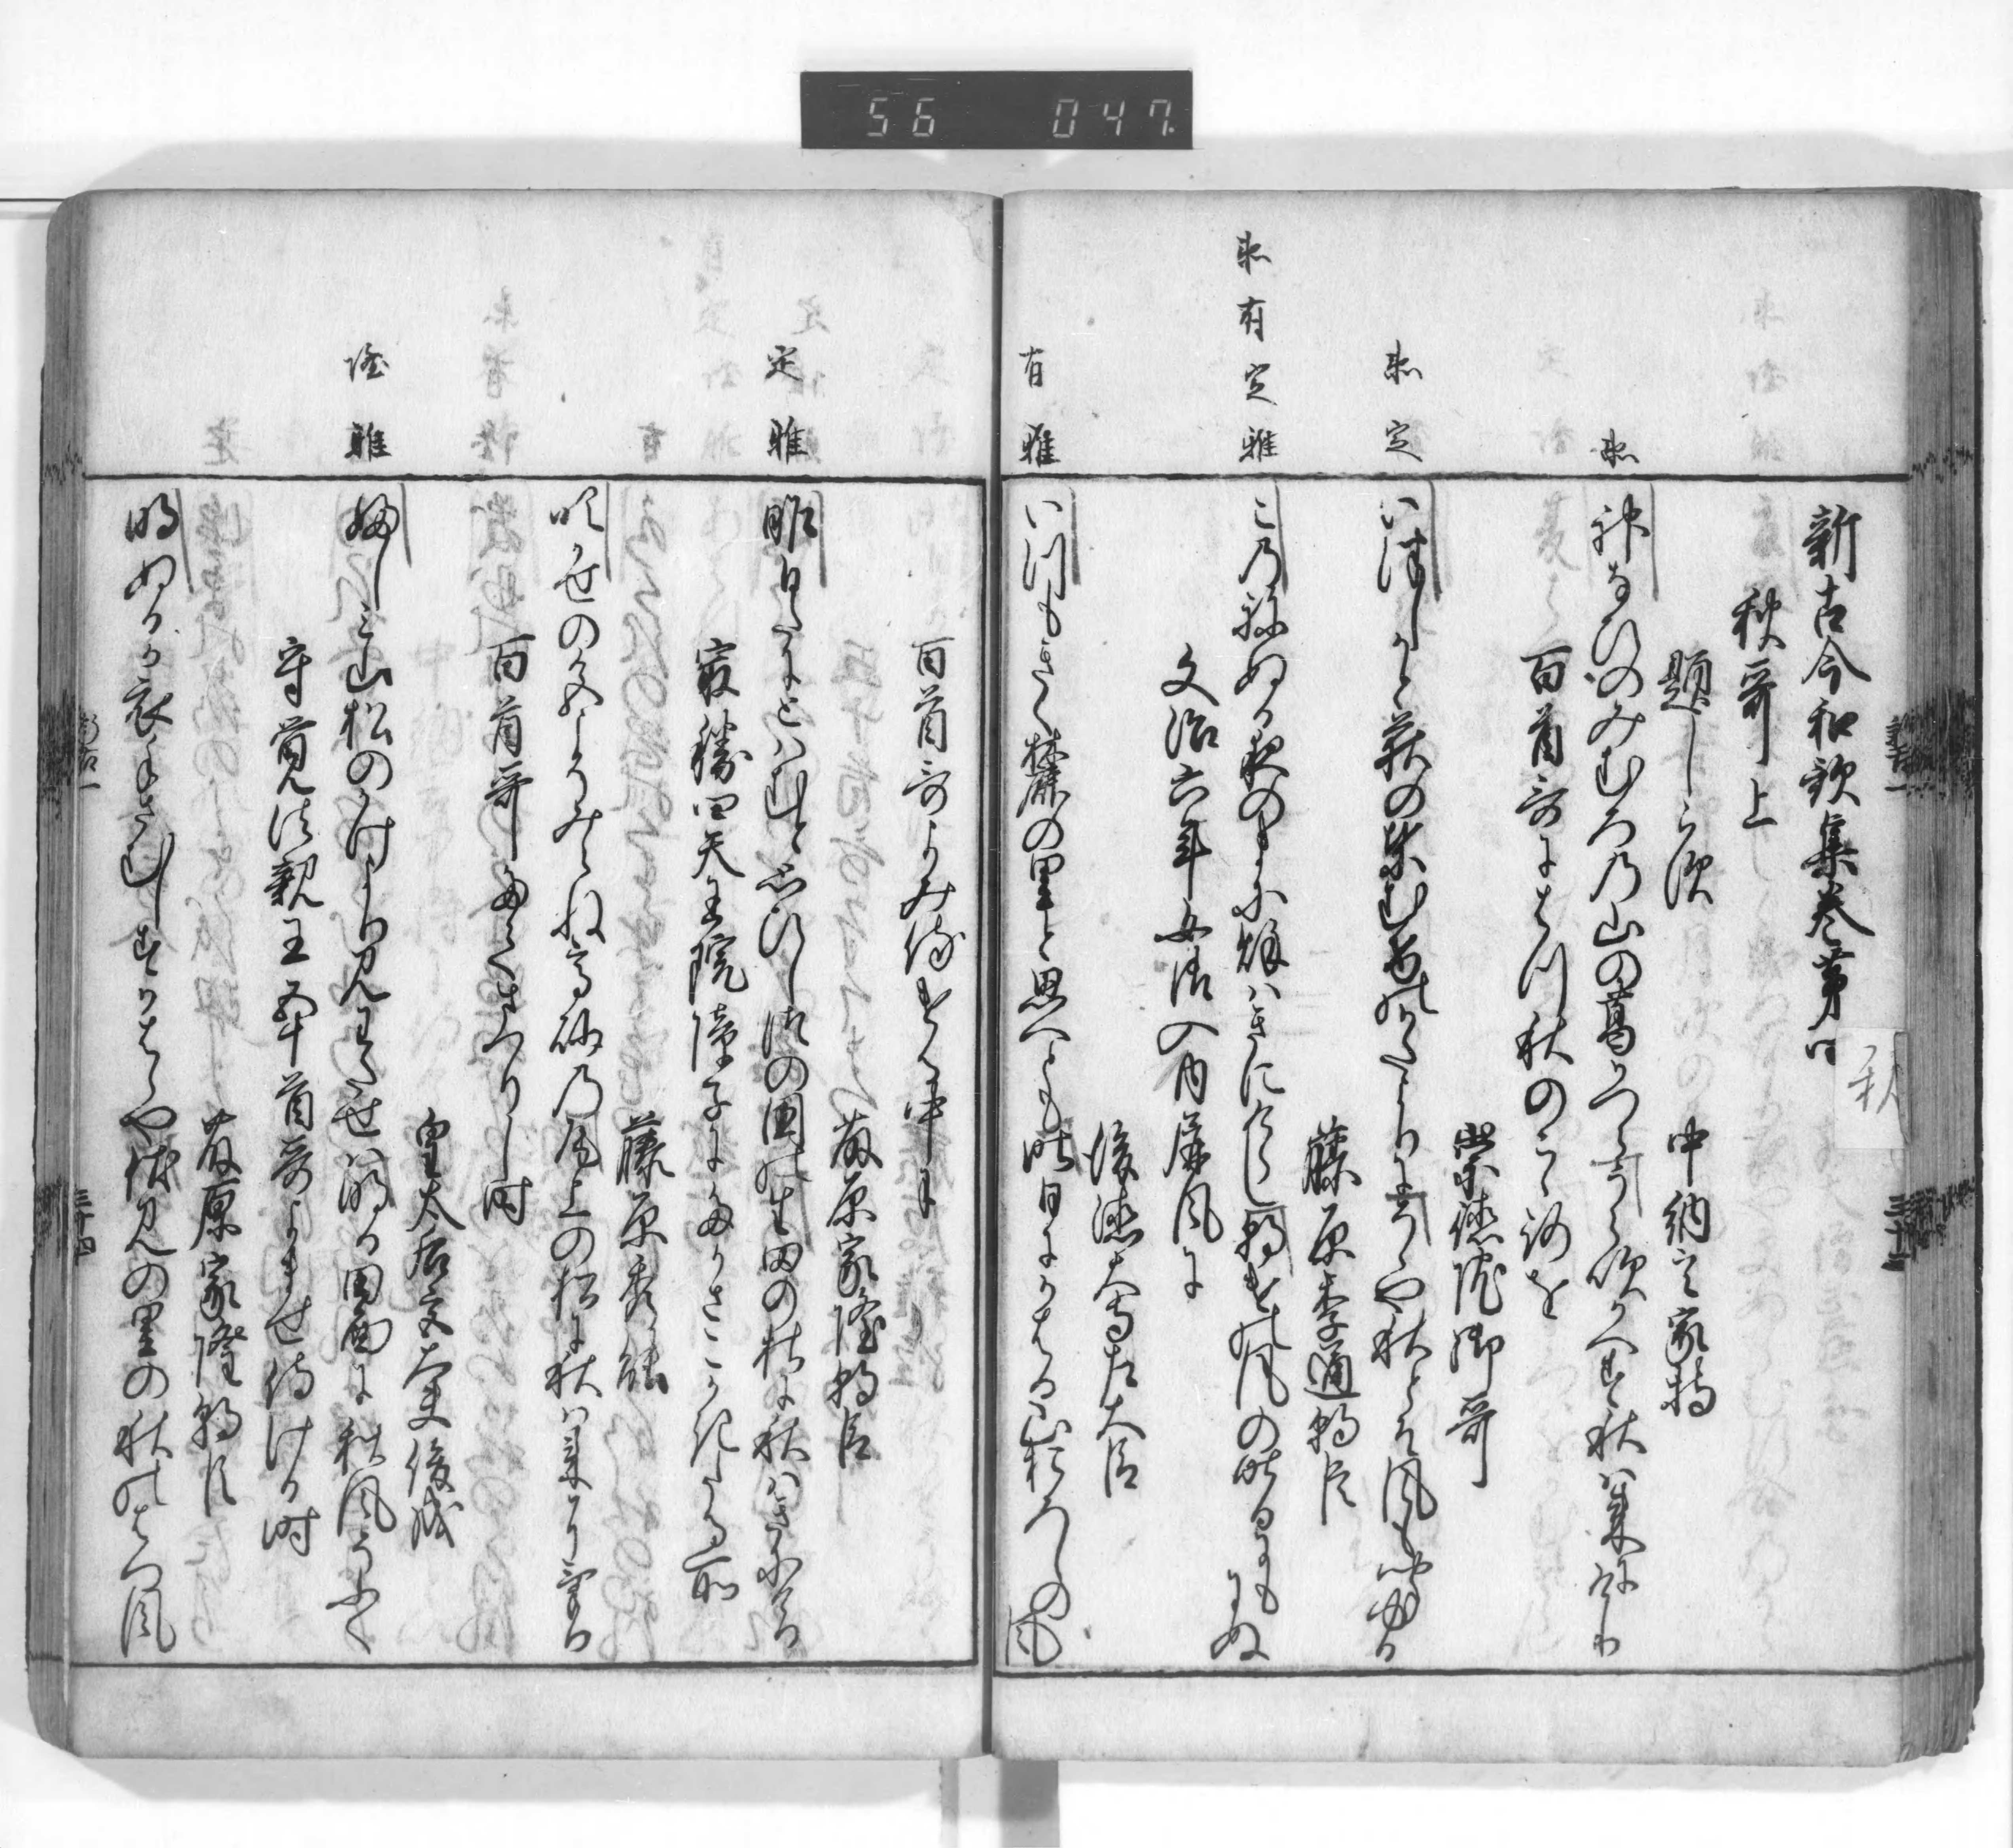 56 047
新古今和歌集巻第四
秋哥上
題しらす
中納言家持
神なひのみむろの山の葛かつらうら吹かへす秋は来にけり
百首哥にはつ秋のこゝろを
崇徳院御哥
いつしかと萩の葉むけのかたよりにそゝや秋とそ風も聞ゆる
藤原季通朝臣
この ねぬる夜のまに秋はきにけらし朝けの風の昨日にもにぬ
文治六年女御入内屏風に
後徳大寺左大臣
いつもきく麓の里と思へとも昨日にかはる山おろしの風
百首哥よみ侍ける中に
藤原家隆朝臣
昨日たにとはむと思ひし津の国の生田の杜に秋はきにけり
最勝四天王院障子にたかさこかきたる所
藤原秀能
吹かせの色こそみえね高砂の尾上の松に秋は来にけり
百首哥たてまつりし時
皇太后宮大夫俊成
ふしみ山松のかけより見わたせは明る田面に秋風そふく
守覚法親王五十首哥よませ侍ける時
藤原家隆朝臣
明ぬるか衣手さむしすかはらや伏見の里の秋のはつ風
秋
隠
定
有
雅
隆